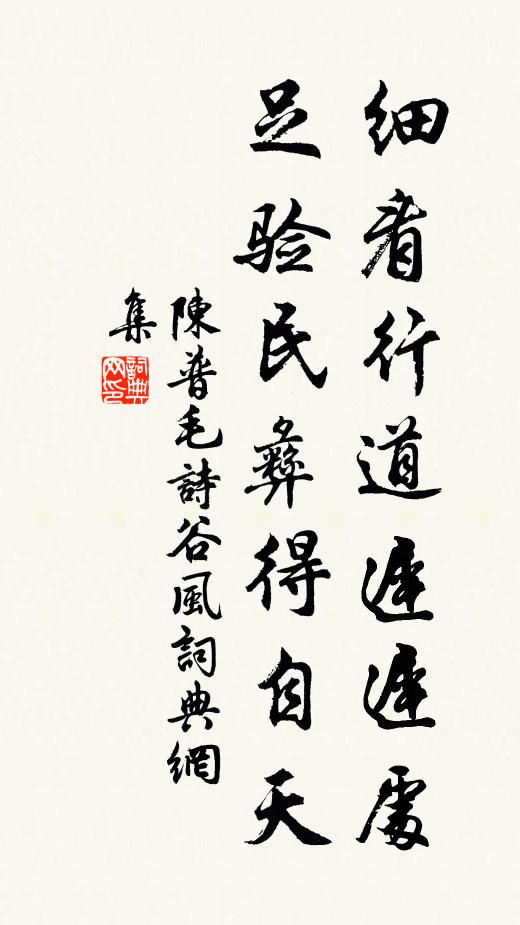 细看行道遲遲處
足验民彝得自天
陳普毛詩谷風詞典網
集
詞典網印